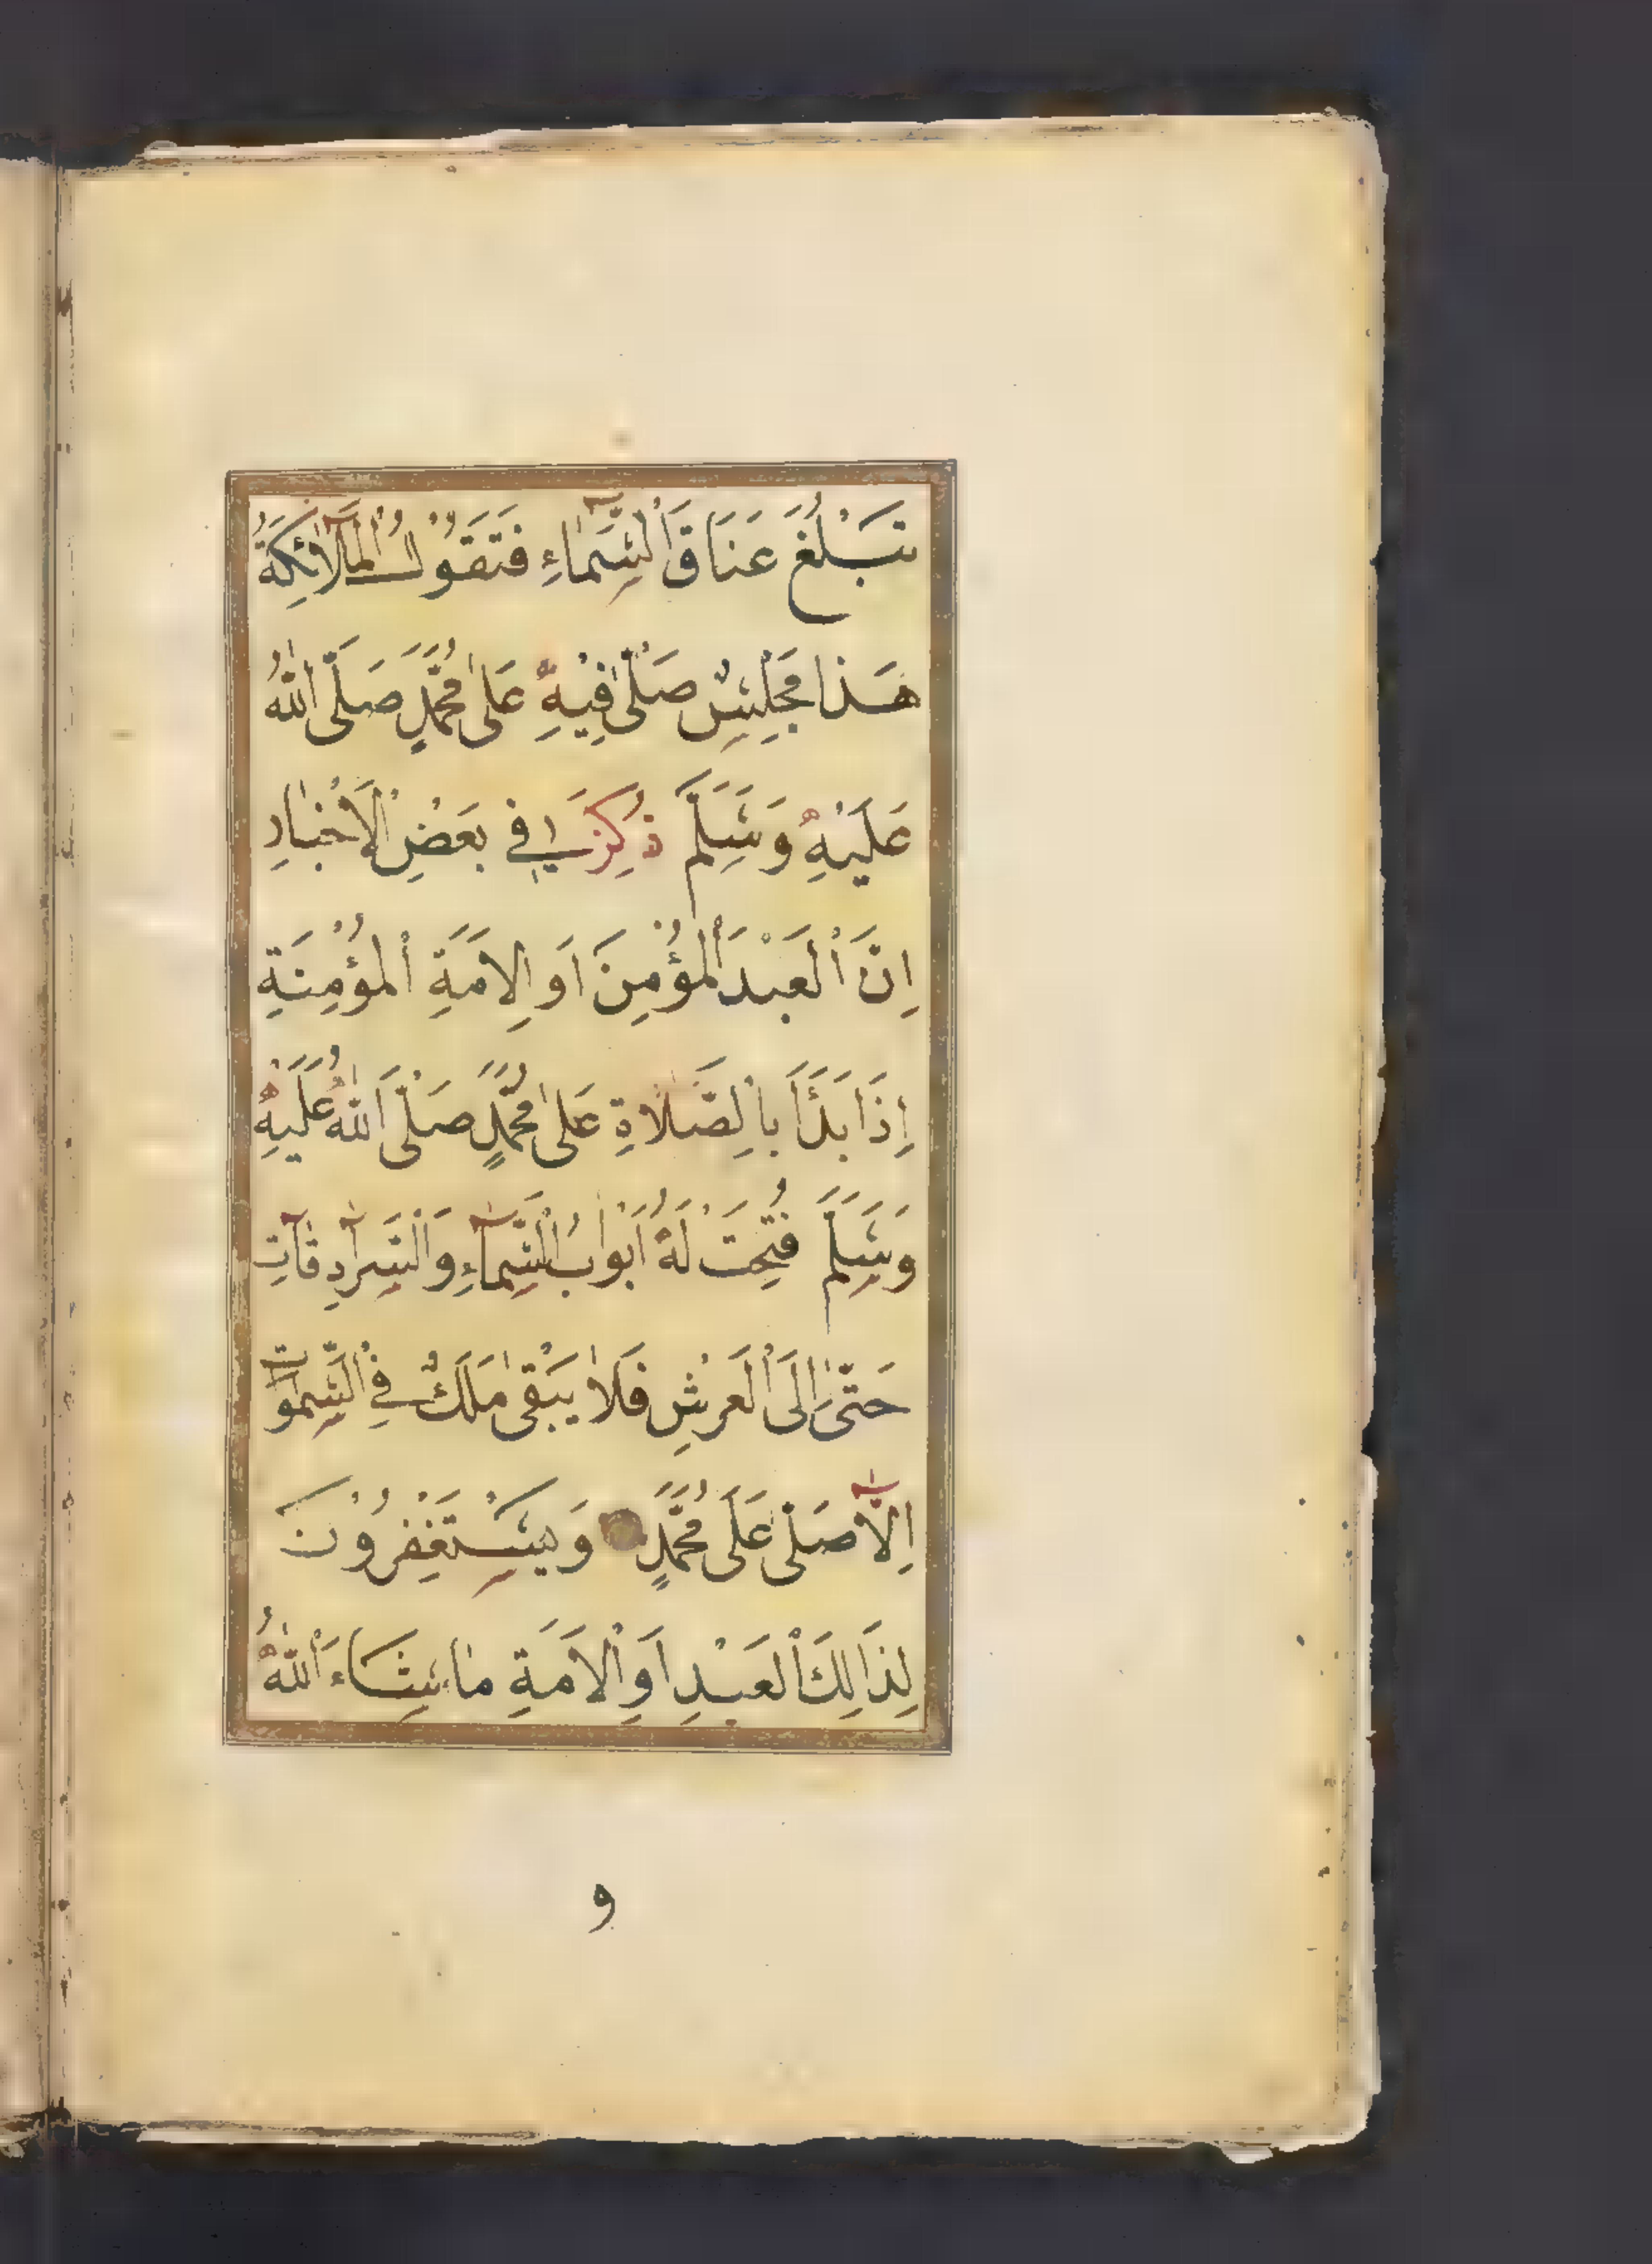 تَبْلُغَ عَنَاقَ اْلسَّمَآءِ فَتَقُولُ الْمَلَآئِكَةُ
هَذَا مَجْلِسٌ صُلّىٰ فِيْهِ عَلىٰ مُحَمَّدٍ صَلَّى اللّٰهُ
عَلَيْهِ وَسَلَّمَ ذُكِرَ فِى بَعْضِ الْاَخْبَارِ
اِنَّ اْلعَبْدَ اْلمُؤْمِنَ اَوِ الاَمَةِ اْلمُؤْمِنَةِ
اِذَا بَدَأَ بِالصَّلَاةِ عَلىٰ مُحَمَّدٍ صَلَّى اللّٰهُ عَلَيْهِ
وَسَلَّمَ فُتِحَتْ لَهُ اَبْوَابُ السَّمَآءِ وَالسُّرَادِقَاتِ
حَتّىٰ اِلَى اْلعَرْشِ فَلَا يَبْقىٰ مَلَكٌ فِى السَّمٰوَاتِ
اِلَّآ صَلّى عَلَى مُحَمَّدٍ وَيَسْتَغْفِرُونَ
لِذَالِكَ اْلعَبْدِ اَوِ اْلاَمَةِ مَا شَاءَ اللّٰهُ
و